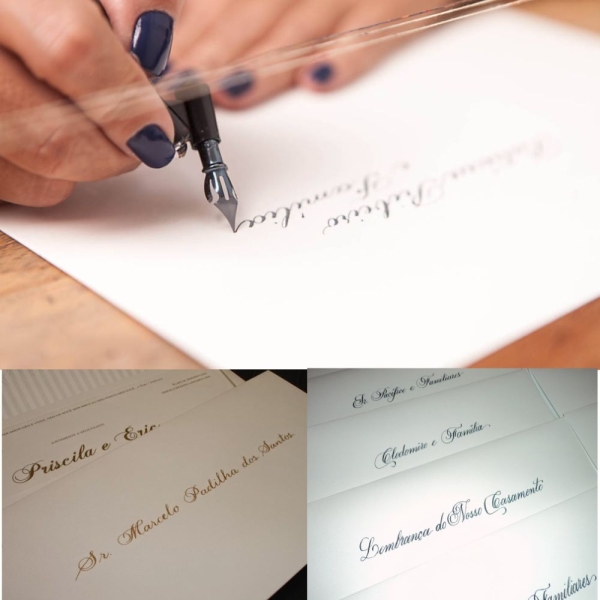 Ribeiro
e Família
Priscila e Eric
Sr. Marcelo Padilha dos Santos
Sr Pacífico e Familiares
Clodomiro e Família
Lembrança do Nosso Casamento
Familiares